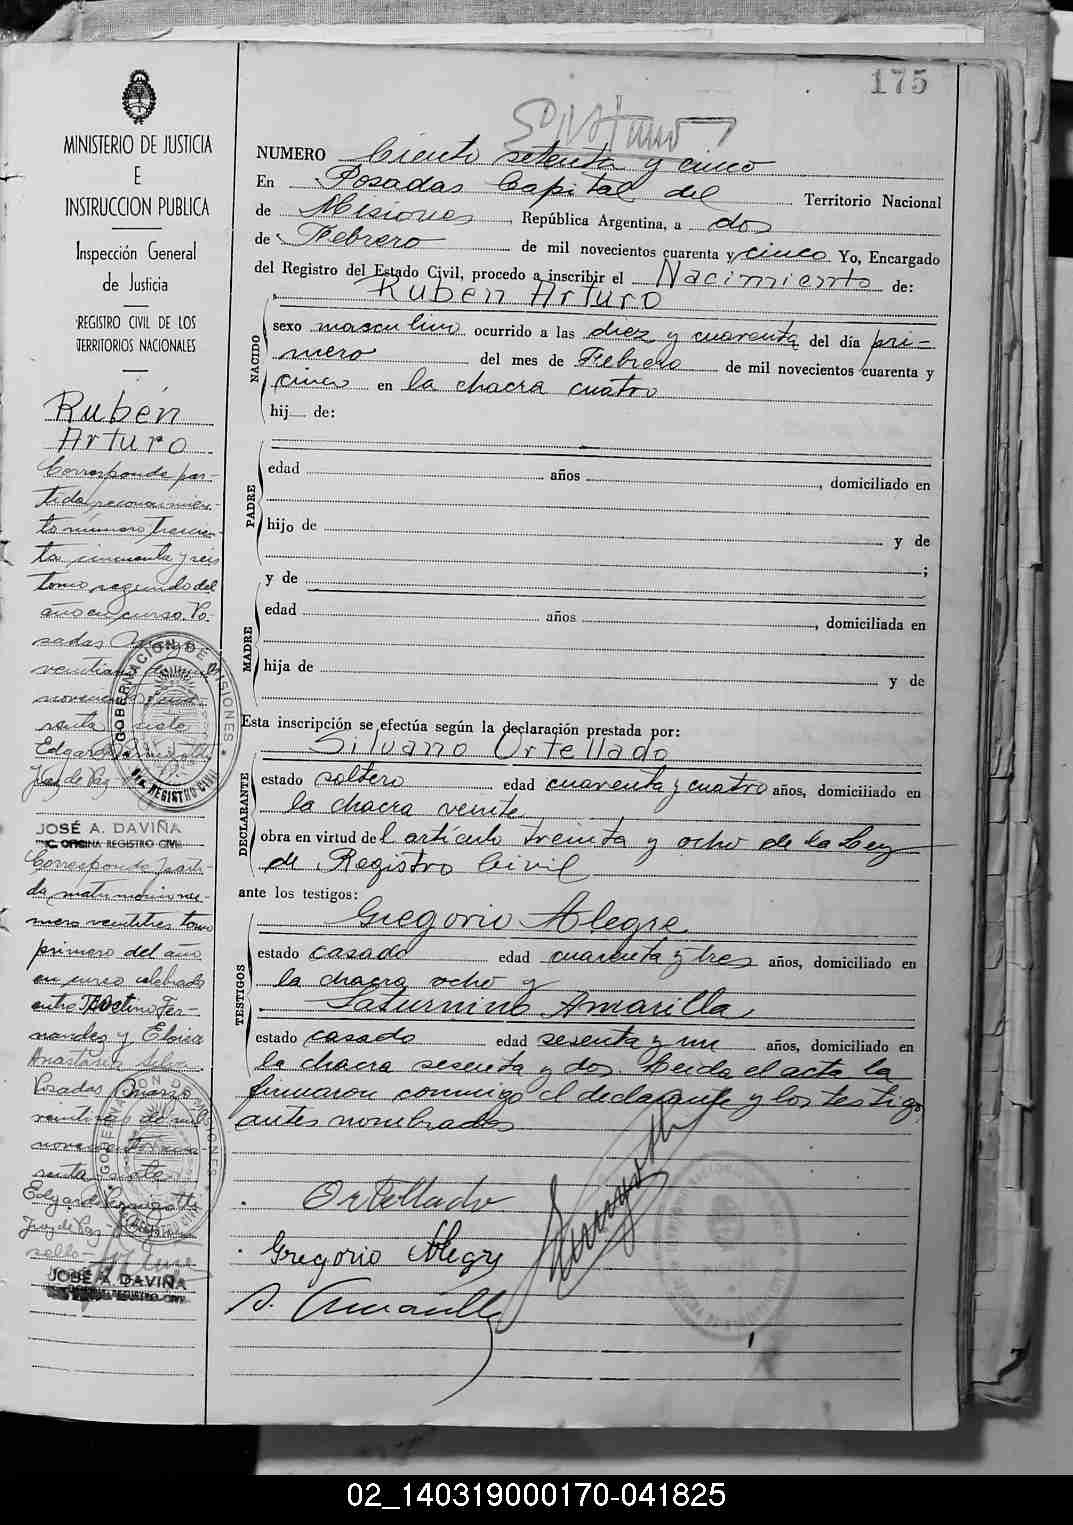 175
MINISTERIO DE JUSTICIA
E
INSTRUCCION PUBLICA
Inspección General
de Justicia
REGISTRO CIVIL DE LOS
TERRITORIOS NACIONALES
Rubén
Arturo
Corresponde par-
tida reconocimien-
to número trescien-
ta cincuenta y seis
tomo segundo del
año en curso. Po-
sadas
Edgar
Juez de Paz
GOBERNACION DE MISIONES
REGISTRO CIVIL
JOSÉ A. DAVIÑA
OFICINA REGISTRO CIVIL
Corresponde parti-
da matrimonio nú-
mero ventitres tomo
primero del año
en curso celebrado
entre Fer-
nandez y Eloisa
Anastasia Silva
Posadas Marzo
Juez de Paz
sello-
JOSÉ A. DAVIÑA
NUMERO Ciento setenta y cinco
En Posadas Capital del Territorio Nacional
de Misiones, República Argentina, a dos
de Febrero de mil novecientos cuarenta y cinco Yo, Encargado
del Registro del Estado Civil, procedo a inscribir el Nacimiento de:
Rubén Arturo
NACIDO
sexo masculino ocurrido a las diez y cuarenta del día pri-
mero del mes de Febrero de mil novecientos cuarenta y
cinco en la chacra cuatro
hij de:
PADRE
edad años , domiciliado en
hijo de y de
;
y de
MADRE
edad años , domiciliada en
hija de y de
Esta inscripción se efectúa según la declaración prestada por:
Silvano Ortellado
DECLARANTE
estado soltero edad cuarenta y cuatro años, domiciliado en
la chacra veinte
obra en virtud del artículo treinta y ocho de la Ley
de Registro Civil
ante los testigos:
Gregorio Alegre
TESTIGOS
estado casado edad cuarenta y tres años, domiciliado en
la chacra ocho y
Saturnino Amarilla
estado casado edad sesenta y un años, domiciliado en
la chacra sesenta y dos. Leida el acta la
firmaron conmigo el declarante y los testigo
antes nombrados
Ortellado
Gregorio Alegre
S. Amarilla
02_140319000170-041825